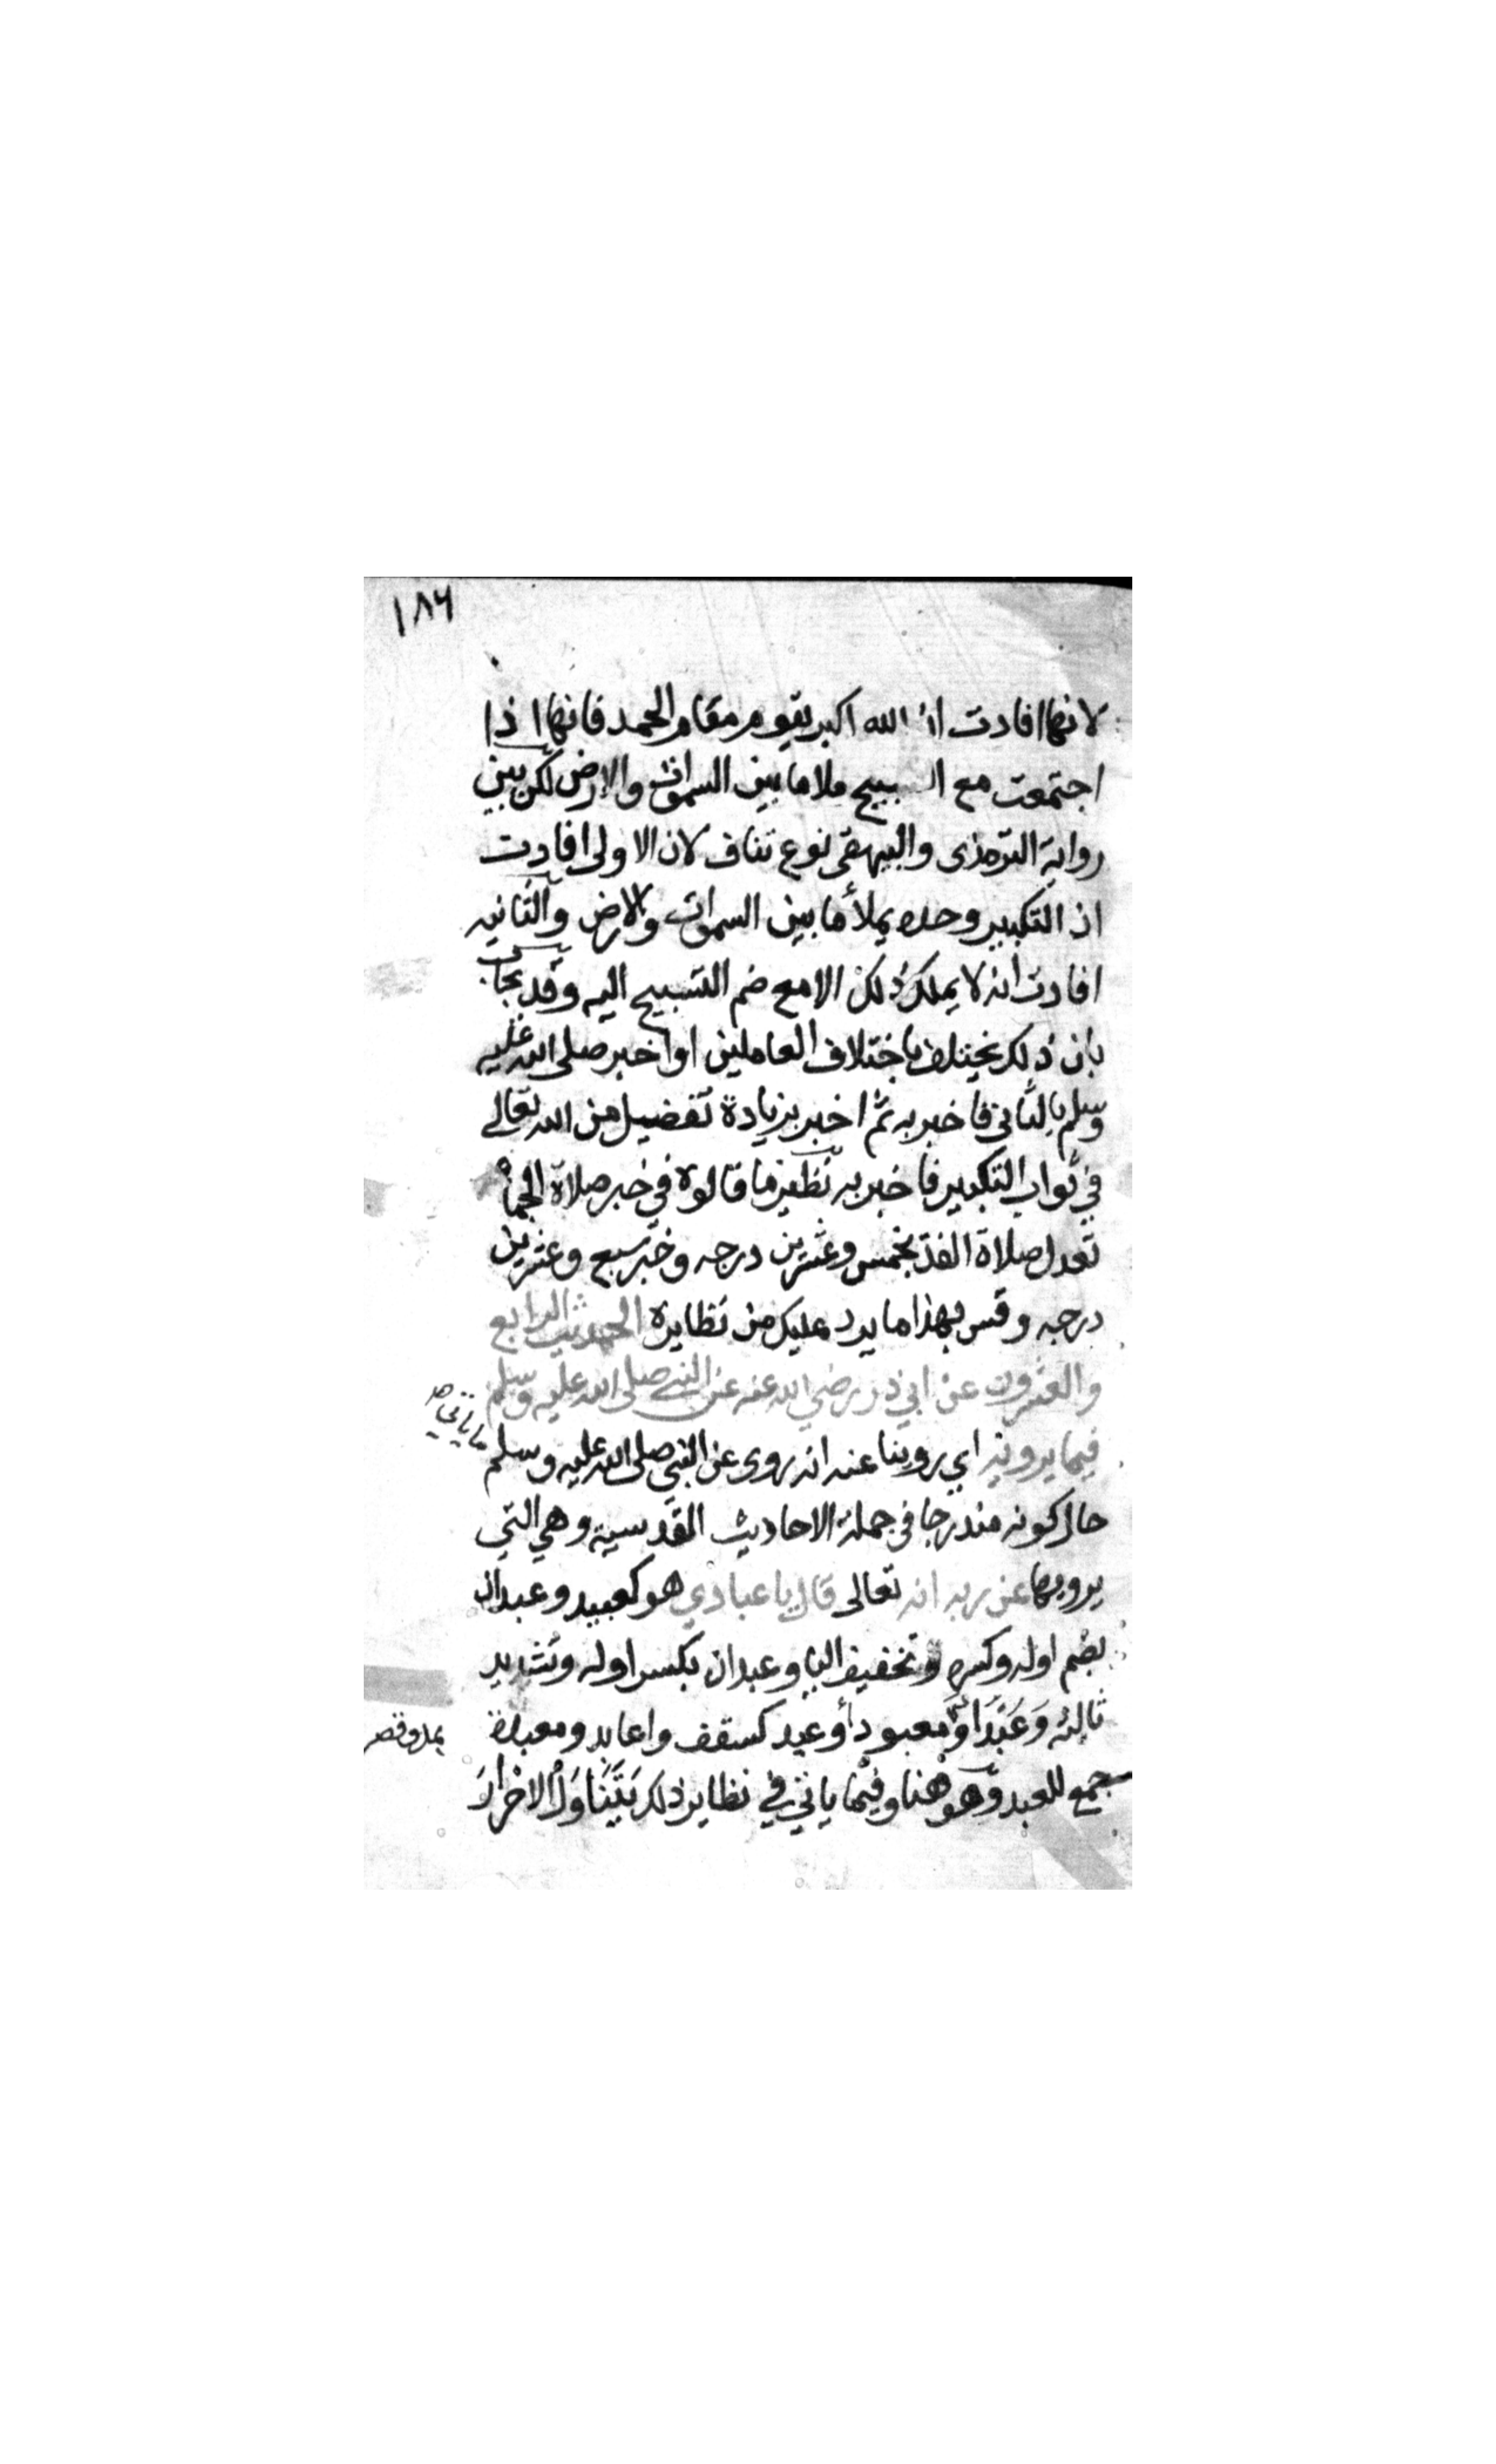 ١٨٦
لانها افادت ان الله اكبر يقوم مقام الحمد فانها اذا
اجتمعت مع التسبيح ملاما بين السموات والارض لكن بين
رواية الترمذى والبيهقى نوع تناف لان الاولى افادت
ان التكبير وحده يملأ ما بين السموات والارض والثانيه
افادت انه لا يملك ذلك الا مع ضم التسبيح اليه وقد يجاب
بان ذلك يختلف باختلاف العاملين او اخبر صلى الله عليه
وسلم بالثانى فاخبر به ثم اخبر بزيادة تفضيل من الله تعالى
في ثواب التكبير فاخبر به نظير ما قالوه في خبر صلاة الجماة
تعدل صلاة الفذ بخمس وعشرين درجه وخبر سبع وعشرين
درجه وقس بهذا ما يرد عليك من نظايره الحديث الرابع
والعشرون عن ابي ذر رضي الله عنه عن النبي صلى الله عليه وسلم
فيما يرويه اي روينا عنه انه روى عن النبي صلى الله عليه وسلم
ما ياتي
حال كونه مندرجا في جملة الاحاديث القدسية وهي التي
يرويها عن ربه انه تعالى قال يا عبادي هو كعبيد وعبدان
بضم اوله وكسره وتخفيف البا وعبدان بكسر اوله وتشديد
ثالثه وَعَبَّدَا ومعبودأ وعبد كسقف واعابد ومعبدة
بمد وقصر
جمع للعبد وهو هنا وفيما ياتي في نظاير ذلك يَتَنَاوَلُ الاحْرارَ